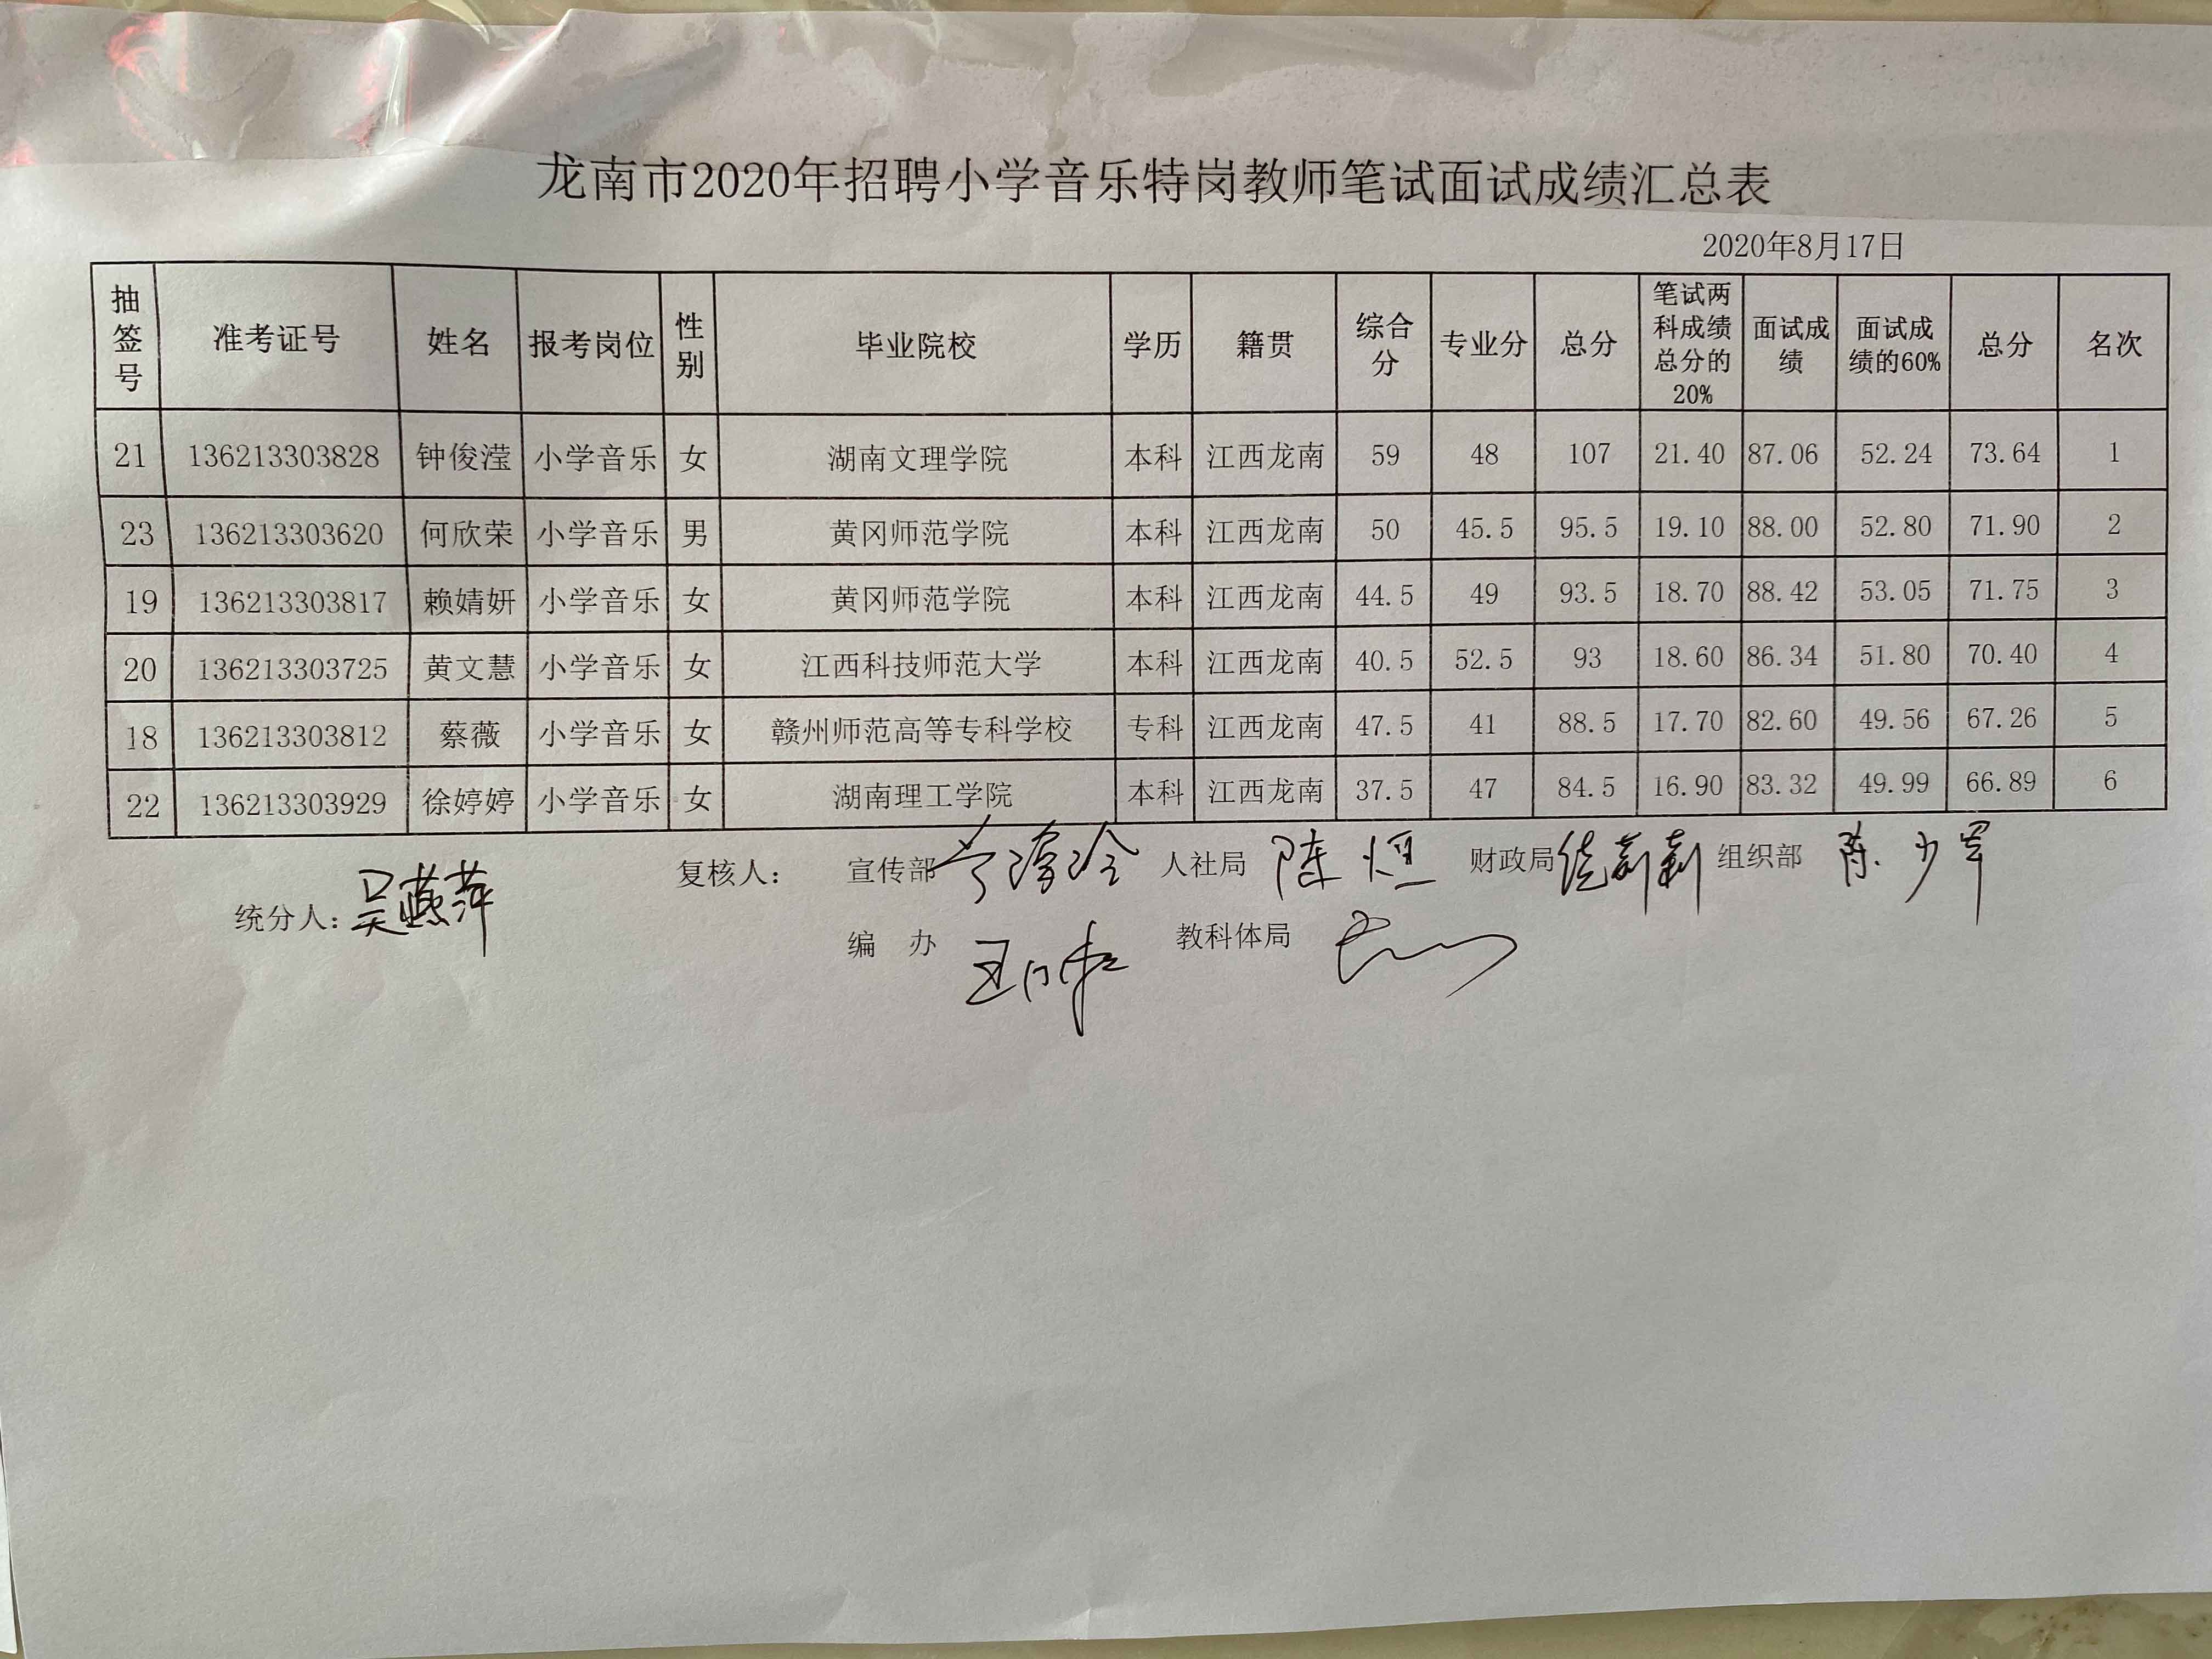 龙南市2020年招聘小学音乐特岗教师笔试面试成绩汇总表
2020年8月17日
抽签号 准考证号 姓名 报考岗位 性别 毕业院校 学历 籍贯 综合分 专业分 总分 笔试两科成绩总分的20% 面试成绩 面试成绩的60% 总分 名次
21 136213303828 钟俊滢 小学音乐 女 湖南文理学院 本科 江西龙南 59 48 107 21.40 87.06 52.24 73.64 1
23 136213303620 何欣荣 小学音乐 男 黄冈师范学院 本科 江西龙南 50 45.5 95.5 19.10 88.00 52.80 71.90 2
19 136213303817 赖婧妍 小学音乐 女 黄冈师范学院 本科 江西龙南 44.5 49 93.5 18.70 88.42 53.05 71.75 3
20 136213303725 黄文慧 小学音乐 女 江西科技师范大学 本科 江西龙南 40.5 52.5 93 18.60 86.34 51.80 70.40 4
18 136213303812 蔡薇 小学音乐 女 赣州师范高等专科学校 专科 江西龙南 47.5 41 88.5 17.70 82.60 49.56 67.26 5
22 136213303929 徐婷婷 小学音乐 女 湖南理工学院 本科 江西龙南 37.5 47 84.5 16.90 83.32 49.99 66.89 6
复核人： 宣传部 人社局 陈烜 财政局 组织部 陈少军
统分人：吴燕萍
编 办 教科体局